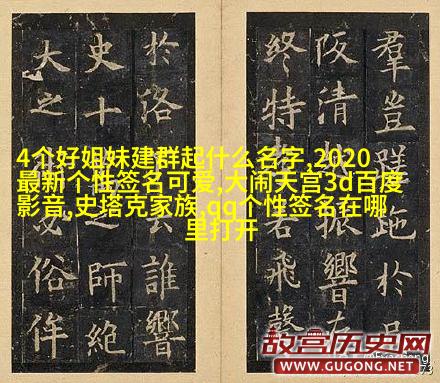 羣豈
於
阪清
振響
終特
若飛
於洛
誰響
史十
之師絶
大之
俗侔
4个好姐妹建群起什么名字,2020
最新个性签名可爱,大闹天宫3d百度
影音,史塔克家族,qq个性签名在哪
里打开
故宫历史网
WWW.GUGONG.NET
73